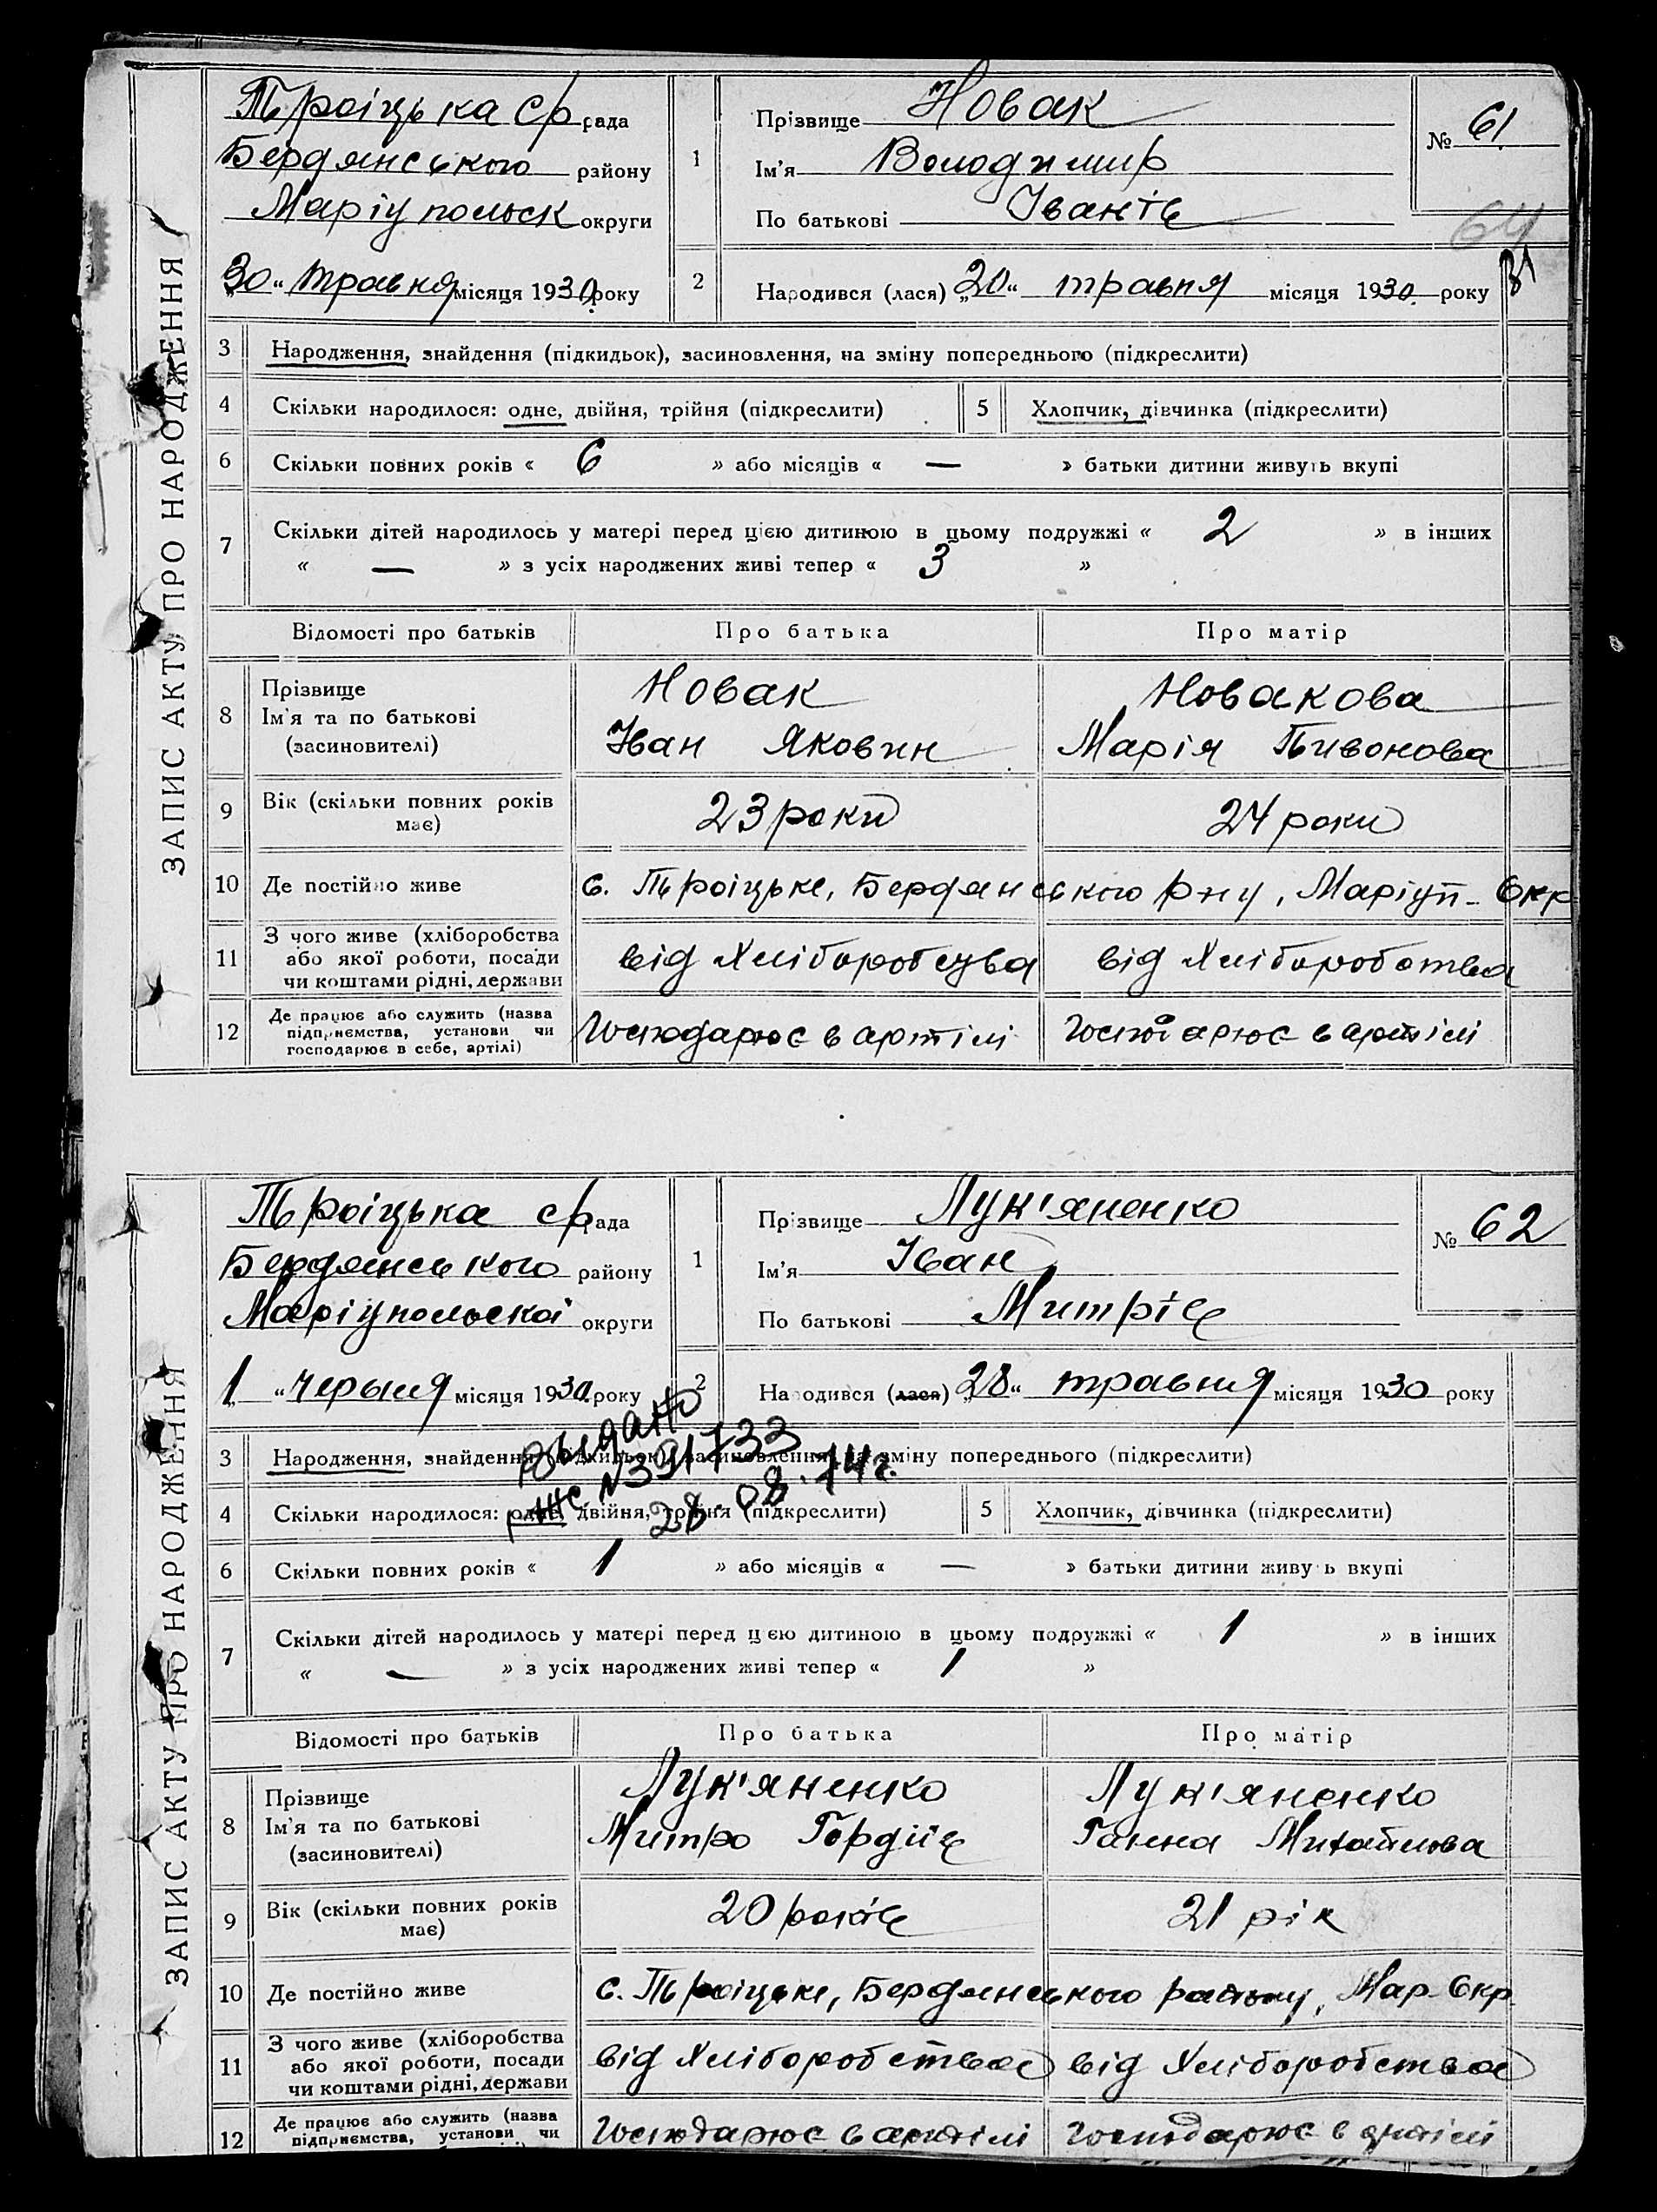 ЗАПИС АКТУ ПРО НАРОДЖЕННЯ
Троіцька с/р рада
Бердянського району
Маріупольск округи
„30“ травня місяця 1930 року
1
Прізвище Новак
Ім'я Володимир
По батькові Іванів
№ 61
64
2
Народився (лася) „20“ травня місяця 1930. року
3 Народження, знайдення (підкидьок), засиновлення, на зміну попереднього (підкреслити)
4 Скільки народилося: одне, двійня, трійня (підкреслити) 5 Хлопчик, дівчинка (підкреслити)
6 Скільки повних років « 6 » або місяців « — » батьки дитини живуть вкупі
7 Скільки дітей народилось у матері перед цією дитиною в цьому подружжі « 2 » в інших
« — » з усіх народжених живі тепер « 3 »
Відомості про батьків Про батька Про матір
8 Прізвище Новак Новакова
Ім'я та по батькові Іван Яковин Марія Пивонова
(засиновителі)
9 Вік (скільки повних років має) 23 роки 24 роки
10 Де постійно живе с. Троіцьке, Бердянського р-ну, Маріуп- Окр
11 З чого живе (хліборобства від Хліборобсцва від Хліборобства
або якої роботи, посади
чи коштами рідні, держави
12 Де працює або служить (назва Господарює в артілі Господарює в артілі
підприємства, установи чи
господарює в себе, артілі)
ЗАПИС АКТУ ПРО НАРОДЖЕННЯ
Троіцька с/р рада
Бердянського району
Маріупольскої округи
„1“ червня місяця 1930 року
1
Прізвище Лук'яненко
Ім'я Іван
По батькові Митрів
№ 62
2
Народився (лася) „28“ травня місяця 1930 року
выдано
ЖС №391733
28.08.74г.
3 Народження, знайдення (підкидьок), засиновлення, на зміну попереднього (підкреслити)
4 Скільки народилося: одне, двійня, трійня (підкреслити) 5 Хлопчик, дівчинка (підкреслити)
6 Скільки повних років « 1 » або місяців « — » батьки дитини живуть вкупі
7 Скільки дітей народилось у матері перед цією дитиною в цьому подружжі « 1 » в інших
« — » з усіх народжених живі тепер « 1 »
Відомості про батьків Про батька Про матір
8 Прізвище Лук'яненко Лук'яненко
Ім'я та по батькові Митро Гордіїв Ганна Михайлова
(засиновителі)
9 Вік (скільки повних років має) 20 років 21 рік
10 Де постійно живе с. Троіцьке, Бердянського району, Мар-Окр
11 З чого живе (хліборобства від Хліборобства від Хліборобства
або якої роботи, посади
чи коштами рідні, держави
12 Де працює або служить (назва Господарює в артілі Господарює в артілі
підприємства, установи чи